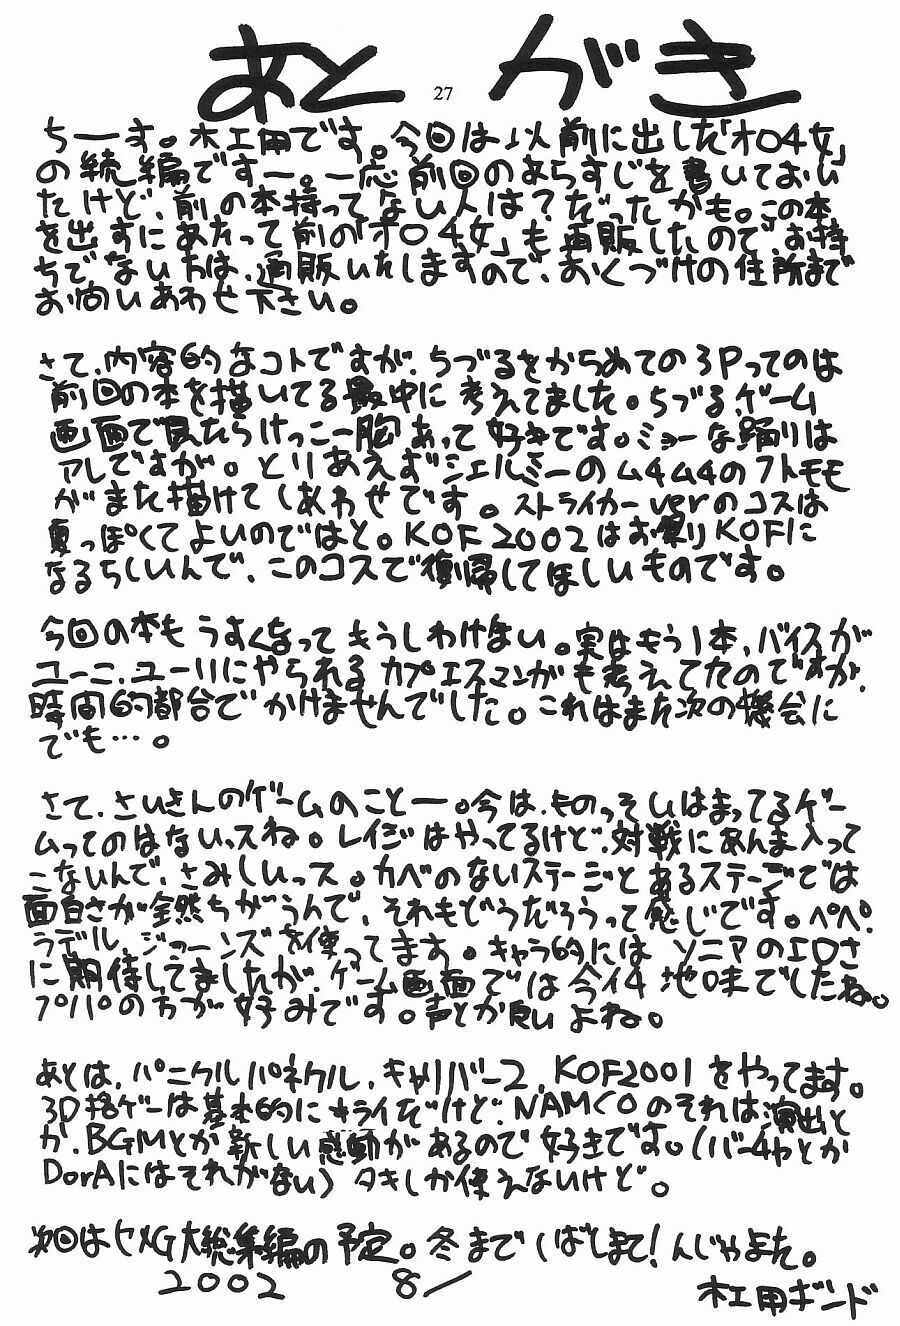 あとがき
27
ちーす。木工用です。今回は以前に出した「オロ4女」
の続編ですー。一応前回のあらすじを書いておい
たけど、前の本持ってない人は?だったかも。この本
を出すにあたって前の「オロ4女」も再販したので、お持
ちでない方は、通販いたしますので、おくづけの住所まで
お問いあわせ下さい。
さて、内容的なコトですが、ちづるをからめての3Pってのは
前回の本を描いてる最中に考えてました。ちづる、ゲーム
画面で見たらけっこー胸あって好きです。ミョーな踊りは
アレですが。とりあえずシェルミーのムチムチのフトモモ
がまた描けてしあわせです。ストライカーverのコスは
夏っぽくてよいのではと。KOF2002はお祭りKOFに
なるらしいんで、このコスで復帰してほしいものです。
今回の本もうすくなってもうしわけない。実はもう1本、バイスが
ユーニ、ユーリにやられるカプエスマンがも考えてたのですが、
時間的都合でかけませんでした。これはまた次の機会に
でも…。
さて、さいきんのゲームのことー。今は、ものっそいはまってるゲー
ムってのはないっスね。レイジはやってるけど、対戦にあんま入って
こないんで、さみしいっス。カベのないステージとあるステージでは
面白さが全然ちがうんで、それもどうだろうって感じです。ペペ、
ラデル、ジョーンズを使ってます。キャラ的にはソニアのエロさ
に期待してましたが、ゲーム画面では今イチ地味でしたね。
プルパの方が好みです。声とか良いよね。
あとは、パニクルパネクル、キャリバー2、KOF2001をやってます。
3D格ゲーは基本的にキライだけど、NAMCOのそれは演出と
か、BGMとか新しい感動があるので好きです。(バーチャとか
DorAにはそれがない)タキしか使えないけど。
次回はヒメG大総集編の予定。冬までしばしまて!んじゃまた。
2002 8/
木工用ボンド